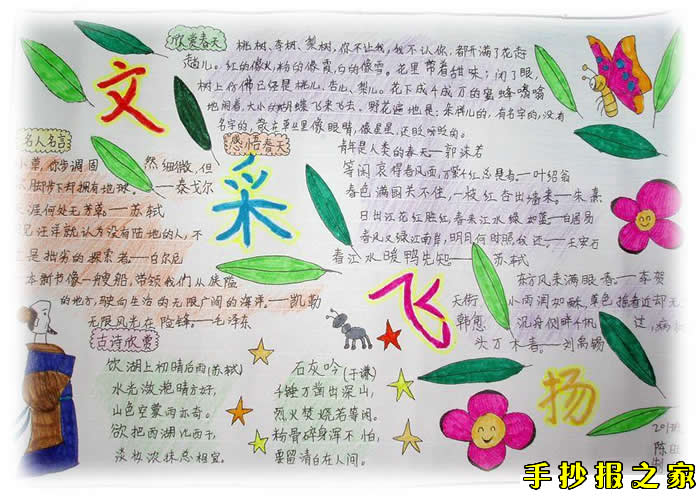 文采飞扬
欣赏春天
桃树、杏树、梨树，你不让我，我不让你，都开满了花赶
趟儿。红的像火，粉的像霞，白的像雪。花里带着甜味；闭了眼，
树上仿佛已经是桃儿、杏儿、梨儿。花下成千成万的蜜蜂嗡嗡
地闹着，大小的蝴蝶飞来飞去。野花遍地是：杂样儿的，有名字的，没有
名字的，散在草丛里像眼睛，像星星，还眨呀眨的。
名人名言
小草，你步调固然细微，但
脚下却拥有地球。——泰戈尔
涯何处无芳草。——苏轼
见汪洋就认为没有陆地的人，不
是拙劣的探索者——白尔尼
本新书像一艘船，带领我们从狭隘
的地方，驶向生活的无限广阔的海洋。——凯勒
无限风光在险峰。——毛泽东
感悟春天
青年是人类的春天——郭沫若
春色满园关不住，一枝红杏出墙来。——朱熹
日出江花红胜火，春来江水绿如蓝——白居易
春风又绿江南岸，明月何时照我还——王安石
春江水暖鸭先知——苏轼
东方风来满眼春。——李贺
天街小雨润如酥，草色遥看近却无
韩愈
沉舟侧畔千帆过，病
头万木春。——刘禹锡
古诗欣赏
饮湖上初晴后雨(苏轼)
水光潋滟晴方好，
山色空蒙雨亦奇。
欲把西湖比西子，
淡妆浓抹总相宜。
石灰吟(于谦)
千锤万凿出深山，
烈火焚烧若等闲。
粉骨碎身浑不怕，
要留清白在人间。
手抄报之家